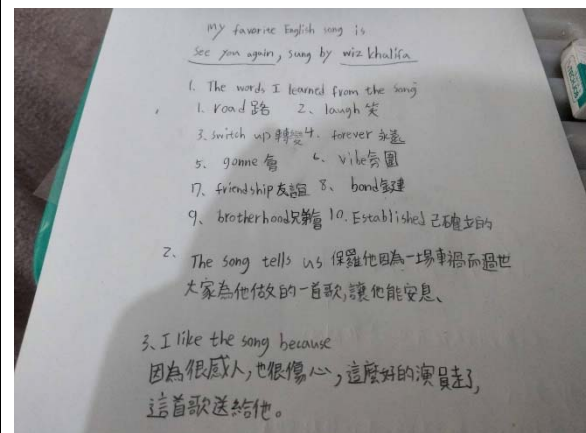 My favorite English song is
See you again, sung by wiz khalifa
1. The words I learned from the song
1. road 路 2、laugh 笑
3. switch up 轉變 4. forever 永遠
5. gonne 會 6. vibe 氛圍
7、friendship 友誼 8、bond 鍵
9、brotherhood 兄弟會 10. Established 已確立的
2、The song tells us 保羅他因為一場車禍而過世
大家為他做的一首歌,讓他能安息、
3、I like the song because
因為很感人,也很傷心,這麼好的演員走了,
這首歌送給他。